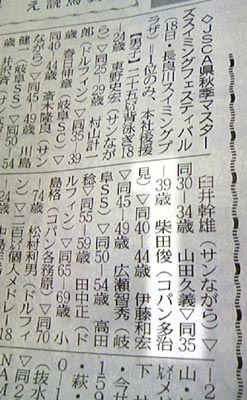 ◇JSCA県秋季マスター
ズスイミングフェスティバル
(18日・長良川スイミングプ
ラザ)=1位のみ、本社後援
【男子】二十五㍍背泳ぎ18
―24歳 東野史宏(サンなが
ら)▽同25―29歳 村山計一
郎(ドルフィン)▽同35―39
歳 春日伸章(岐阜SC)▽
同40―44歳 斎木隆良(サン
ながら)▽同45―49歳 川島
健(岐阜SS)▽同50―54
臼井幹雄(サンながら)▽
同30―34歳 山田久義▽同35
―39歳 柴田俊(コパン多治
見)▽同40―44歳 伊藤和宏
▽同45―49歳 広瀬智秀(岐
阜SS)▽同50―54歳 高田
稔▽同55―59歳 田中正(ド
ルフィン)▽同65―69歳 小
島格(コパン各務原)▽同70
―74歳 松村利男(ドルフィ
ン)▽二百㍍個人メドレー18